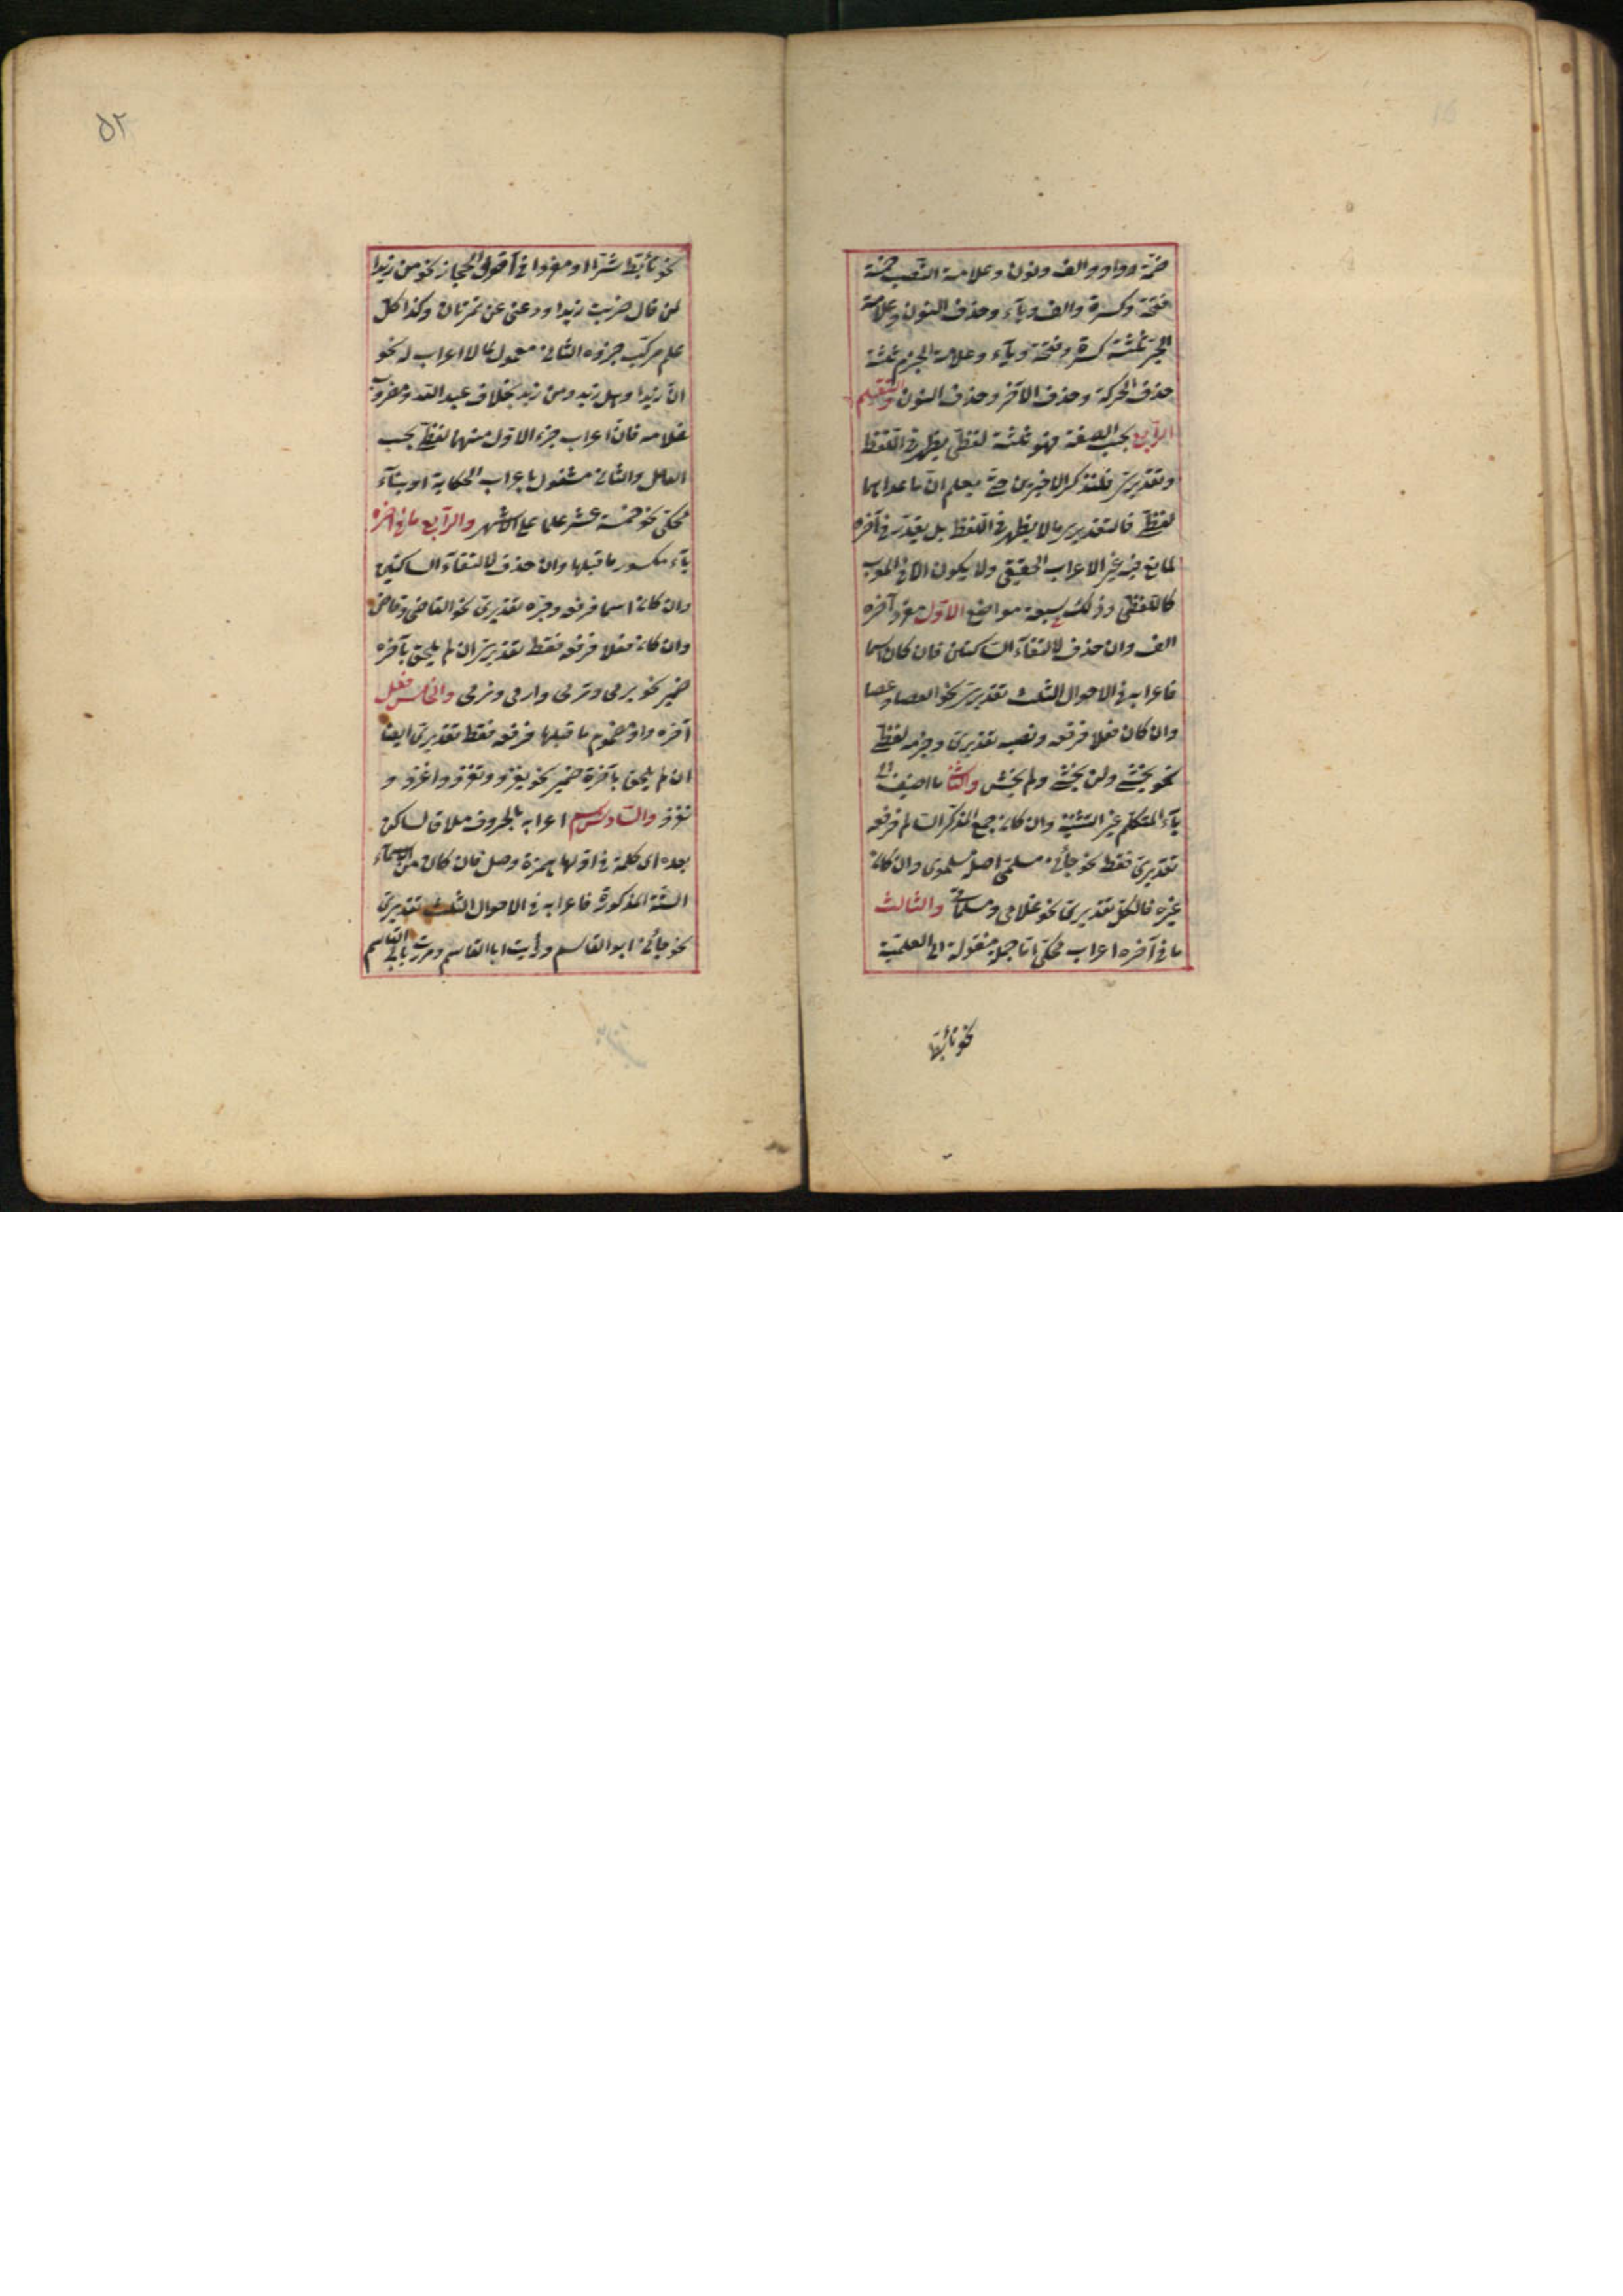 ضمة وواو والف ونون وعلامة النصب خمسة
فتحة وكسرة والف وياء وحذف النون وعلامة
الجر ثلثة كسرة وفتحة وياء وعلامة الجزم ثلثة
حذف الحركة وحذف الآخر وحذف النون والتقسيم
الرابع بحسب الصفة فهو ثلثة لفظى يظهر فى اللفظ
وتقديرى فلنذكر الاخيرين حتى يعلم ان ما عداهما
لفظى فالتقديرى ما لا يظهر فى اللفظ بل يقدر فى آخره
لمانع فيه غير الاعراب الحقيقى ولا يكون الا فى المعرب
كاللفظى وذلك سبعة مواضع الاول مفرد آخره
الف وان حذف لالتقاء الساكنين فان كان اسما
فاعرابه فى الاحوال الثلث تقديرى نحو العصا وعصا
وان كان فعلا فرفعه ونصبه تقديرى وجزمه لفظى
نحو يخشى ولن يخشى ولم يخش والثانى ما اضيف الى
ياء المتكلم غير التثنية وان كان جمع المذكر السالم فرفعه
تقديرى فقط نحو جائنى مسلمى اصله مسلموى وان كان
غيره فالكل تقديرى نحو غلامى ومسلماتى والثالث
ما فى آخره اعراب محكى اما جملة منقولة الى العلمية
نحو تأبط
٥٢
نحو تأبط شرا او مفردا فى قول الحجاز نحو من زيدا
لمن قال ضربت زيدا ودعنى عن تمرتان وكذا كل
علم مركب جزؤه الثانى معمول لما لا اعراب له نحو
ان زيدا وهل زيد ومن زيد بخلاف عبد الله ومضروب
غلامه فان اعراب جزء الاول منهما لفظى بحسب
العامل والثانى مشغول باعراب الحكاية او بناء
محكى نحو خمسة عشر علما على الاشهر والرابع ما فى آخره
ياء مكسور ما قبلها وان حذف لالتقاء الساكنين
وان كان اسما فرفعه وجره تقديرى نحو القاضى وقاض
وان كان فعلا فرفعه فقط تقديرى ان لم يلحق بآخره
ضمير نحو يرمى وترمى وارمى ونرمى والخامس فعل
آخره واو مضموم ما قبلها فرفعه فقط تقديرى ايضا
ان لم يلحق بآخره ضمير نحو يغزو وتغزو واغزو و
نغزو والسادس اسم اعرابه بالحروف ملاق لساكن
بعده اى كلمة فى اولها همزة وصل فان كان من الاسماء
الستة المذكورة فاعرابه فى الاحوال الثلث تقديرى
نحو جائنى ابو القاسم ورأيت ابا القاسم ومررت بابى القاسم